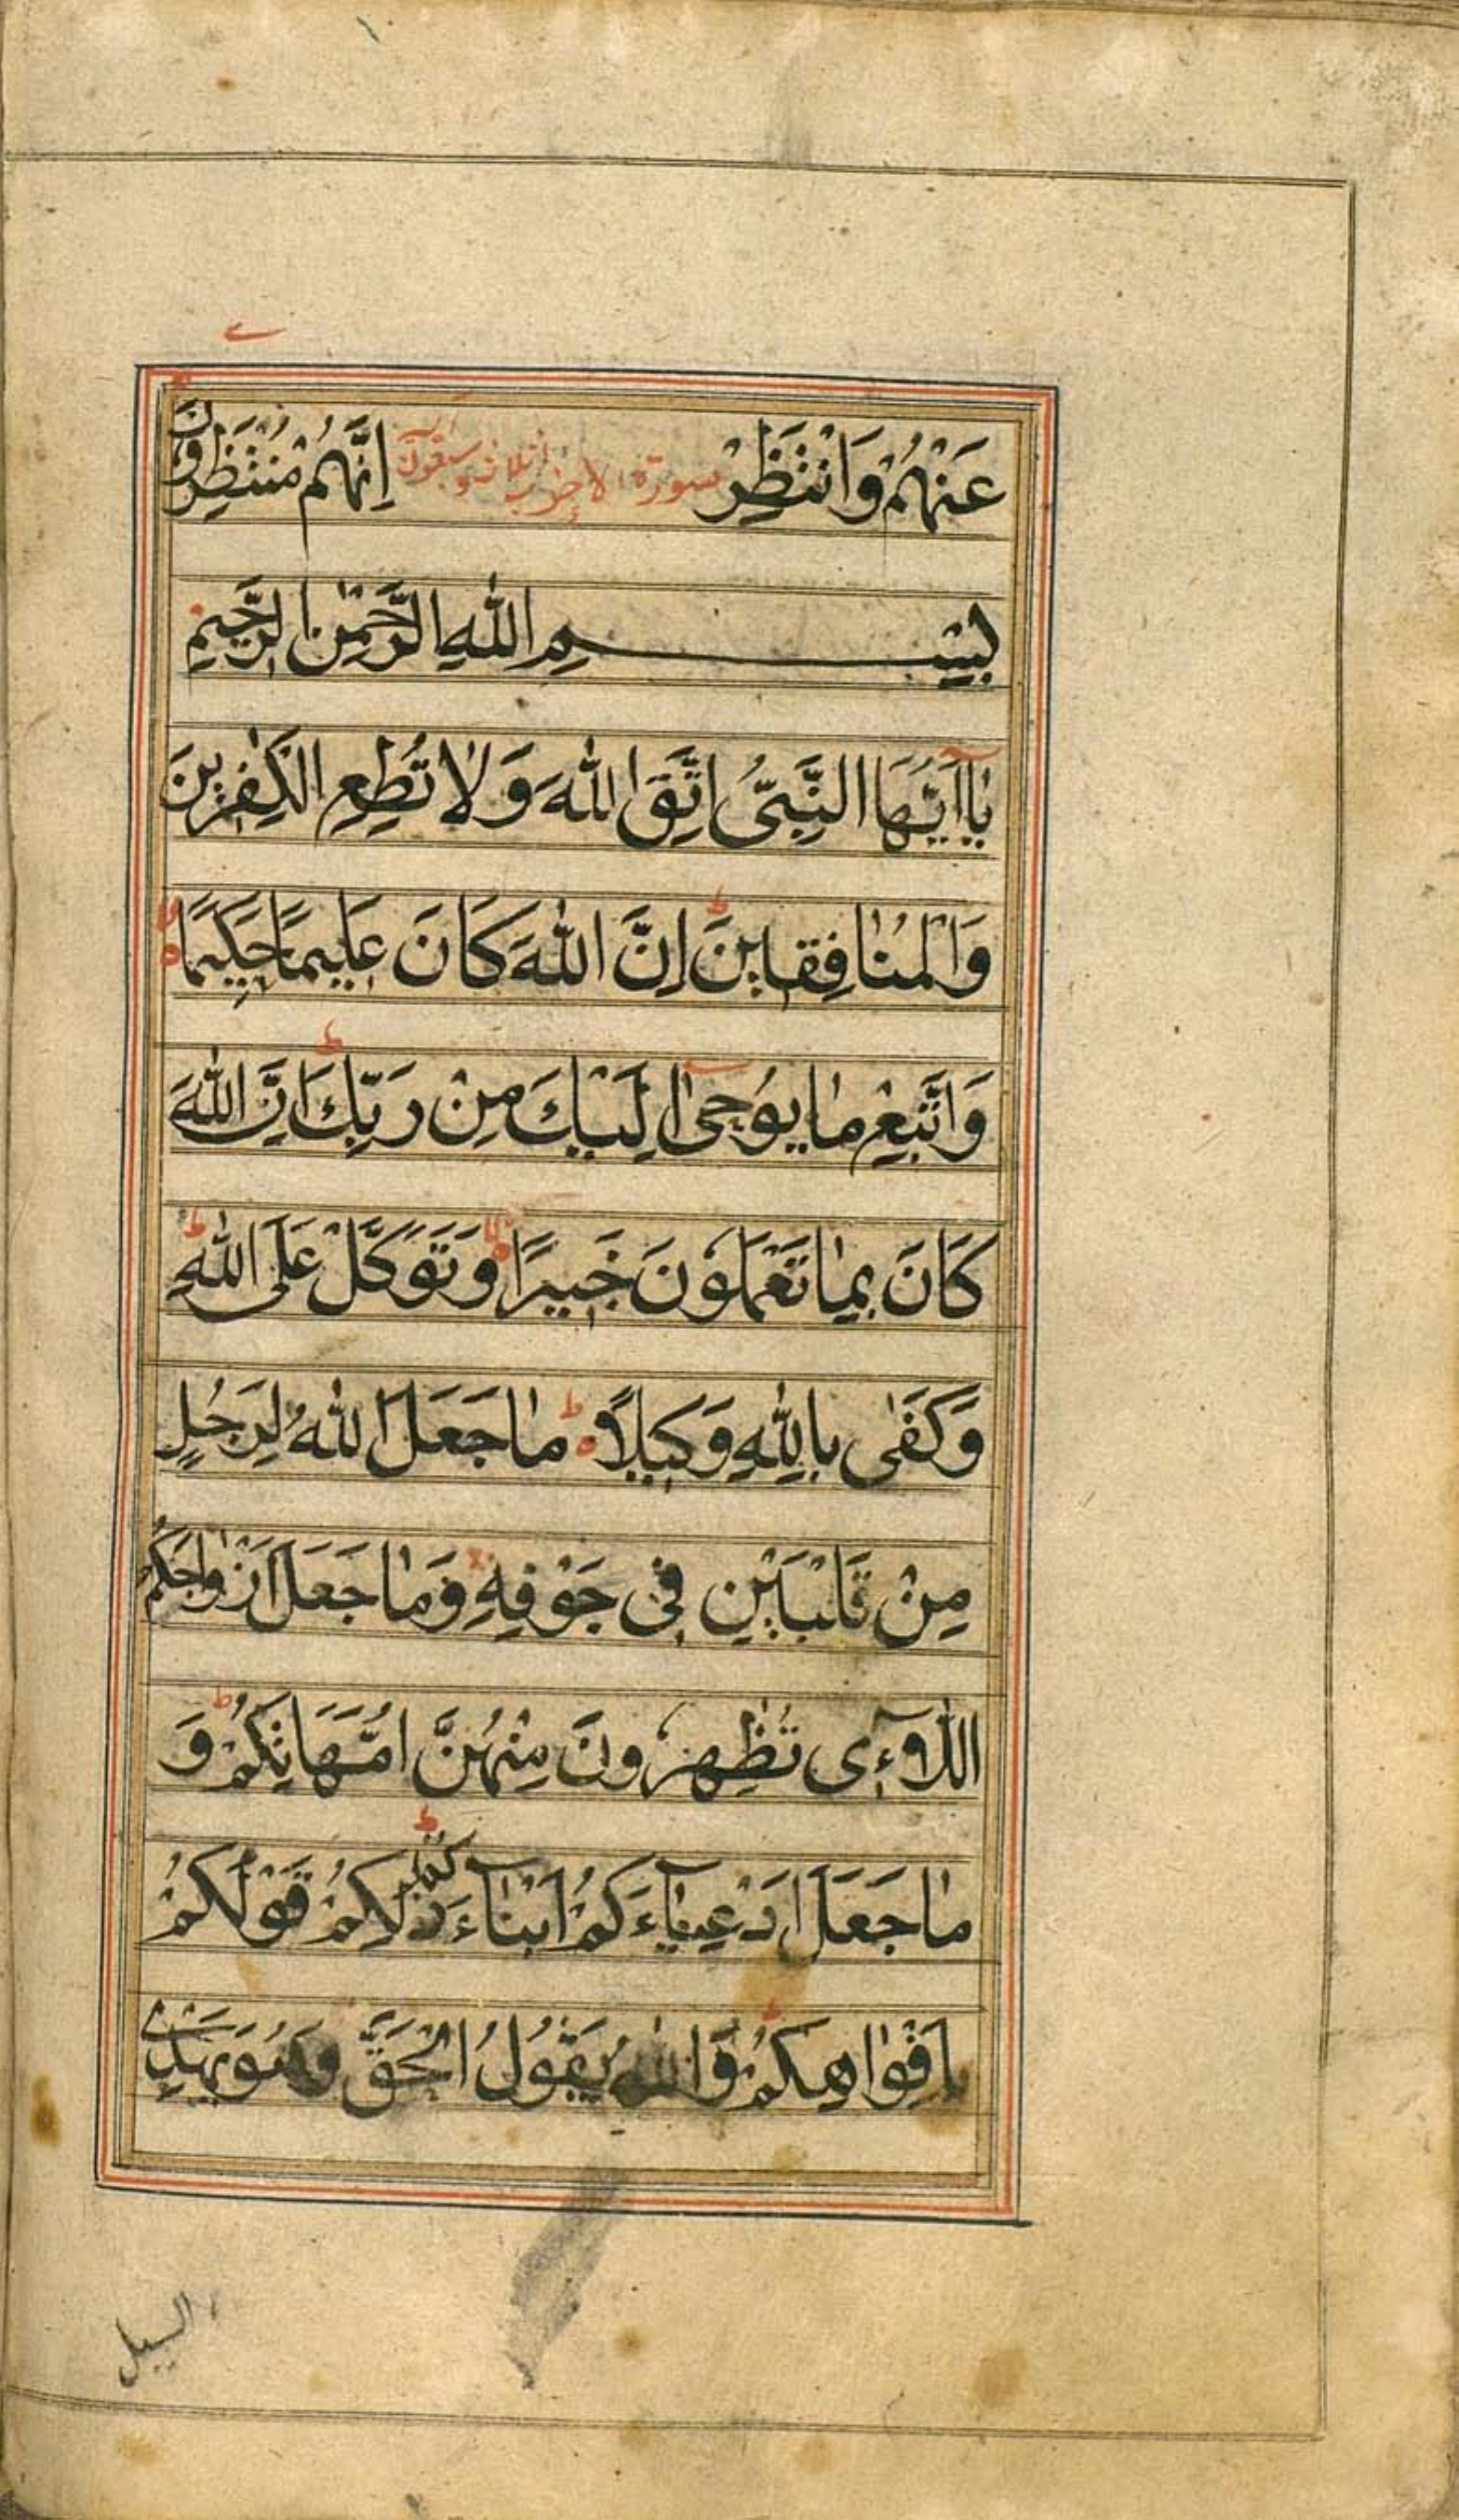 عَنْهُمْ وَانْتَظِرْ سورة الاحزاب ثلاث و سبعون آية اِنَّهُمْ مُنْتَظِرُونَ
بِسْمِ اللّٰهِ الرَّحْمٰنِ الرَّحِيْمِ
يٰٓااَيُّهَا النَّبِىُّ اتَّقِ اللّٰهَ وَلَا تُطِعِ الْكٰفِرِيْنَ
وَالْمُنٰافِقِيْنَ ط اِنَّ اللّٰهَ كَانَ عَلِيمًا حَكِيمًا
وَاتَّبِعْ مٰا يُوحىٰٓ اِلَيْكَ مِنْ رَبِّكَ ط اِنَّ اللّٰهَ
كَانَ بِمٰا تَعْمَلُونَ خَبِيرًا وَتَوَكَّلْ عَلَى اللّٰهِ ط
وَكَفٰى بِاللّٰهِ وَكِيلًا ط مٰا جَعَلَ اللّٰهُ لِرَجُلٍ
مِنْ قَلْبَيْنِ فِى جَوْفِهِ وَمٰا جَعَلَ اَزْوٰاجَكُمُ
اللّٰآءِى تُظٰهِرُونَ مِنْهُنَّ اُمَّهَاتِكُمْ ط وَ
مٰا جَعَلَ اَدْعِيٰآءَكُمْ اَبْنٰآءَكُمْ ط ذٰلِكُمْ قَوْلُكُمْ
بِاَفْوٰاهِكُمْ ط وَاللّٰهُ يَقُولُ الْحَقَّ وَهُوَ يَهْدِى
السبيل